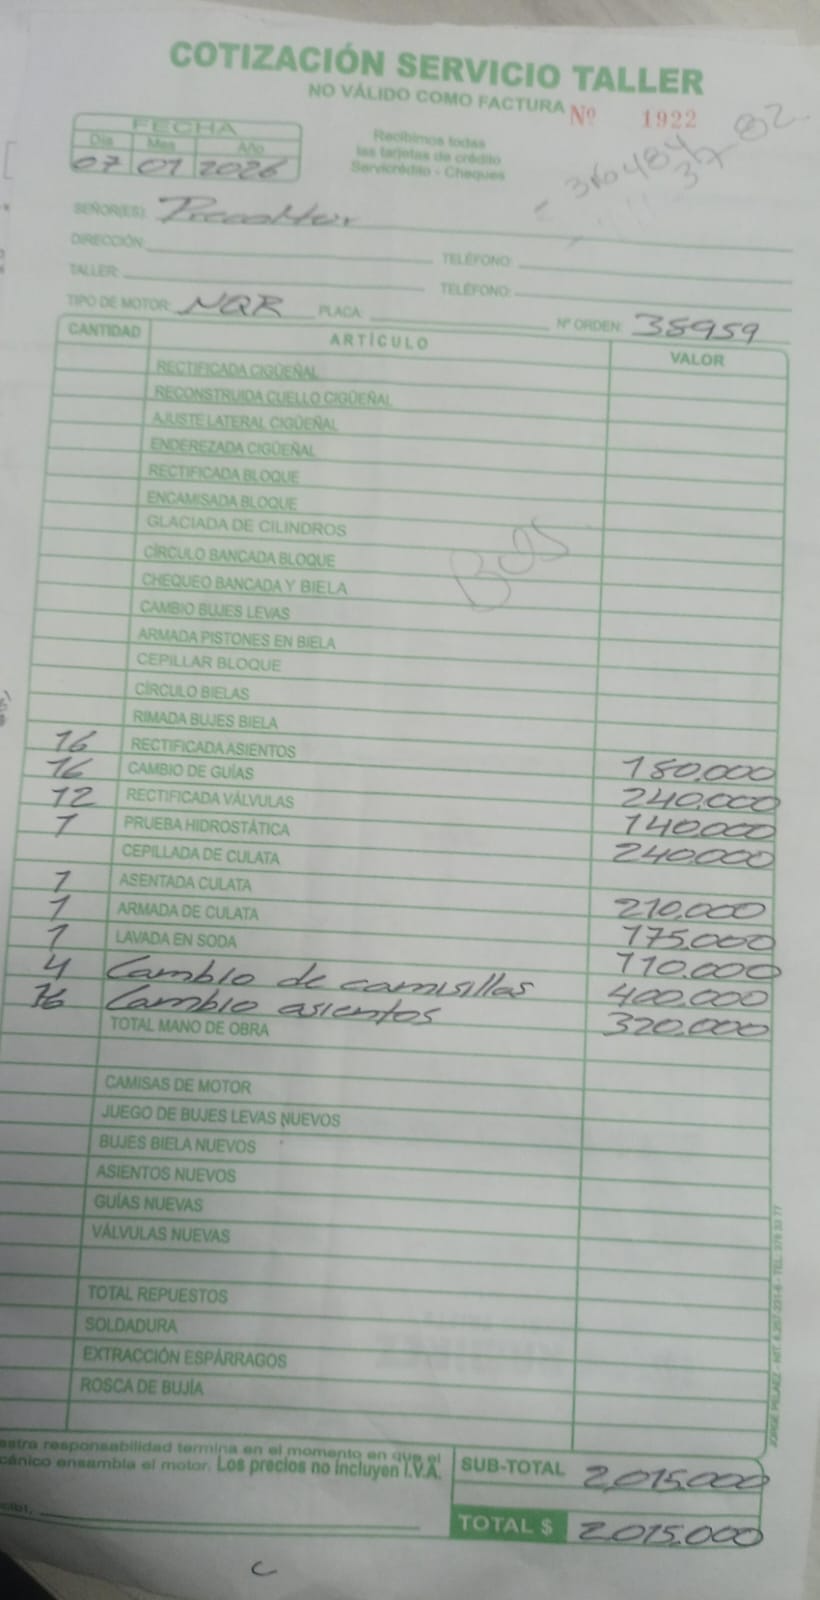 COTIZACIÓN SERVICIO TALLER
NO VÁLIDO COMO FACTURA Nº 1922
FECHA
Día Mes Año
07 01 2026
Recibimos todas
las tarjetas de crédito
Servicrédito - Cheques
SEÑOR(ES):
DIRECCIÓN: TELÉFONO:
TALLER: TELÉFONO:
TIPO DE MOTOR: NQR PLACA: Nº ORDEN: 38959
CANTIDAD ARTÍCULO VALOR
RECTIFICADA CIGÜEÑAL
RECONSTRUIDA CUELLO CIGÜEÑAL
AJUSTE LATERAL CIGÜEÑAL
ENDEREZADA CIGÜEÑAL
RECTIFICADA BLOQUE
ENCAMISADA BLOQUE
GLACIADA DE CILINDROS
CÍRCULO BANCADA BLOQUE
CHEQUEO BANCADA Y BIELA
CAMBIO BUJES LEVAS
ARMADA PISTONES EN BIELA
CEPILLAR BLOQUE
CÍRCULO BIELAS
RIMADA BUJES BIELA
16 RECTIFICADA ASIENTOS 180.000
16 CAMBIO DE GUÍAS 240.000
12 RECTIFICADA VÁLVULAS 140.000
1 PRUEBA HIDROSTÁTICA 240.000
CEPILLADA DE CULATA
1 ASENTADA CULATA 210.000
1 ARMADA DE CULATA 175.000
1 LAVADA EN SODA 110.000
4 Cambio de camisillas 400.000
16 Cambio asientos 320.000
TOTAL MANO DE OBRA
CAMISAS DE MOTOR
JUEGO DE BUJES LEVAS NUEVOS
BUJES BIELA NUEVOS
ASIENTOS NUEVOS
GUÍAS NUEVAS
VÁLVULAS NUEVAS
TOTAL REPUESTOS
SOLDADURA
EXTRACCIÓN ESPÁRRAGOS
ROSCA DE BUJÍA
estra responsabilidad termina en el momento en que el
cánico ensambla el motor. Los precios no incluyen I.V.A.
SUB-TOTAL 2,015.000
TOTAL $ 2,015.000